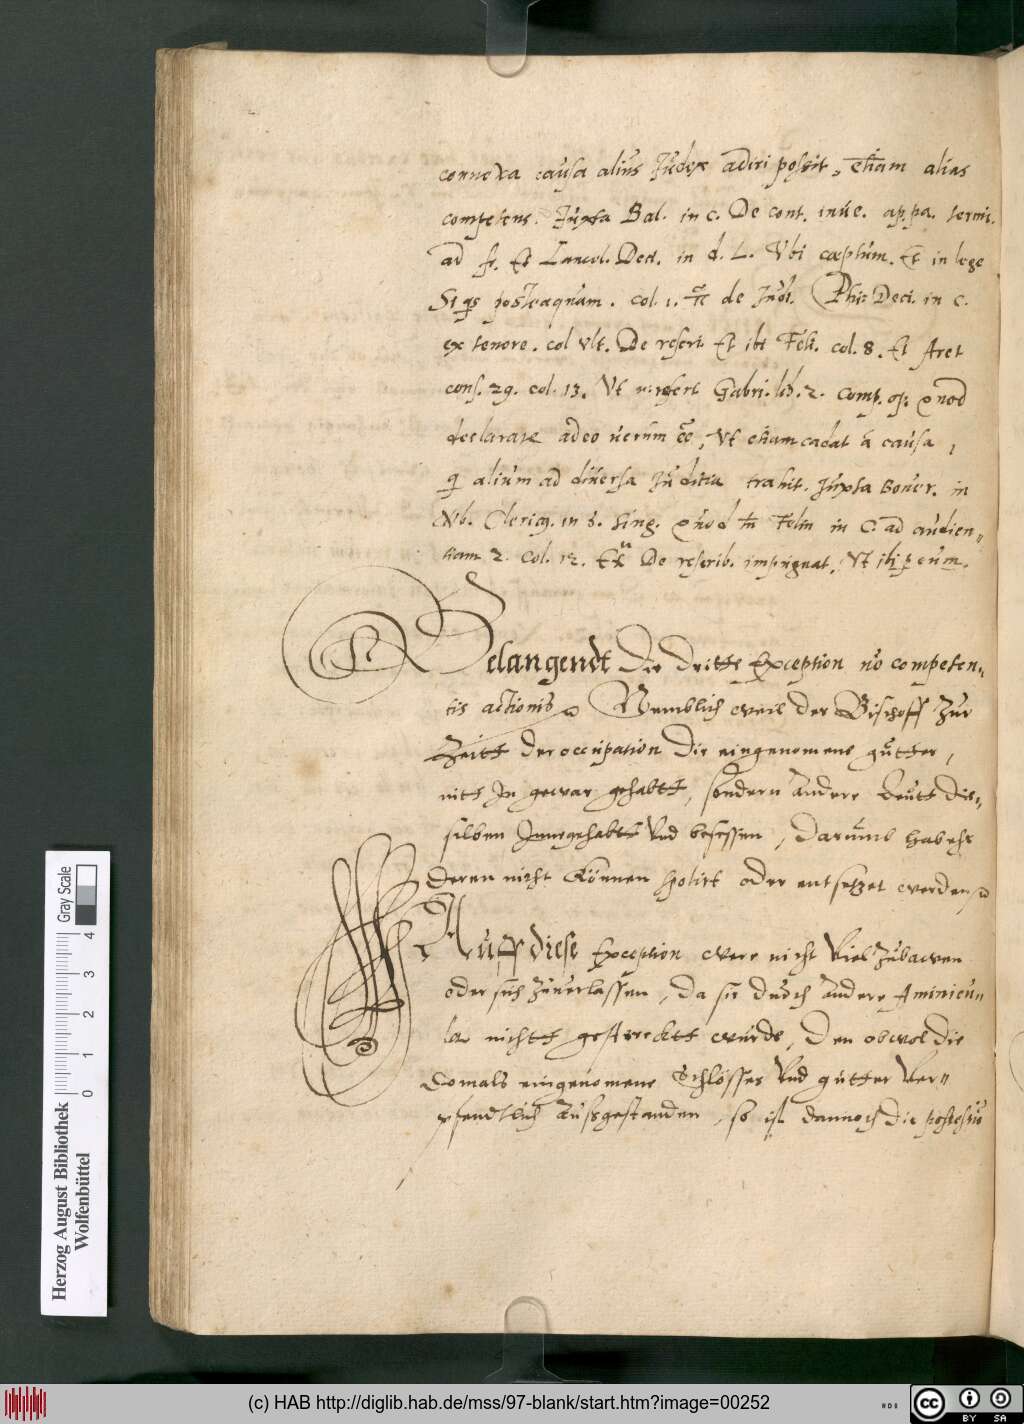 connexa causa alius Judex adiri possit, etiam alias
competens. Juxta Bal. in c. De cont. inve. ap. pa. termi.
ad fi. Et Lancel. Deci. in d. L. Ubi cœptum. Et in lege
Si qs posteaquam. col. 1. ff de Judi. Phi: Deci. in c.
ex tenore. col vlt. De rescri. Et ibi Feli. col. 8. Et Aret
cons. 29. col. 13. Vt refert Gabri. lib. 2. Comp. op. quod
declarate adeo verum eē, Vt etiam cadat à causa,
qi alium ad diversa Juditia trahit. Juxta Bouer. in
Vb. Cleric9. in s. sing. quod tn̄ Felin in C. ad audien-
tiam 2. col. 12. Exu De rescrib. impugnat. Vt ibi p eum.
Belangendt die dritte Exception nō competen-
tis actionis Nemblich weil der Bischoff zur
Zeitt der occupation die eingenomene gütter,
nitt In gewar gehabtt, sondern andere Leutt die-
selben Innegehabtt vnd besessen, darumb hab ehr
deren nicht können spolirt oder entsetzet werden
Auff diese Exception were nicht viel zubawen
oder sich zuuerlassen, da sie durch andere Aminicu-
la nichtt gestercktt würde, Den obwol die
Domals eingenomene Schlösser vnd gütter Ver-
pfendtlich Außgestanden, so ist dannoch die possessio
Herzog August Bibliothek
Wolfenbüttel
Gray Scale
0 1 2 3 4
(c) HAB http://diglib.hab.de/mss/97-blank/start.htm?image=00252
cc BY SA